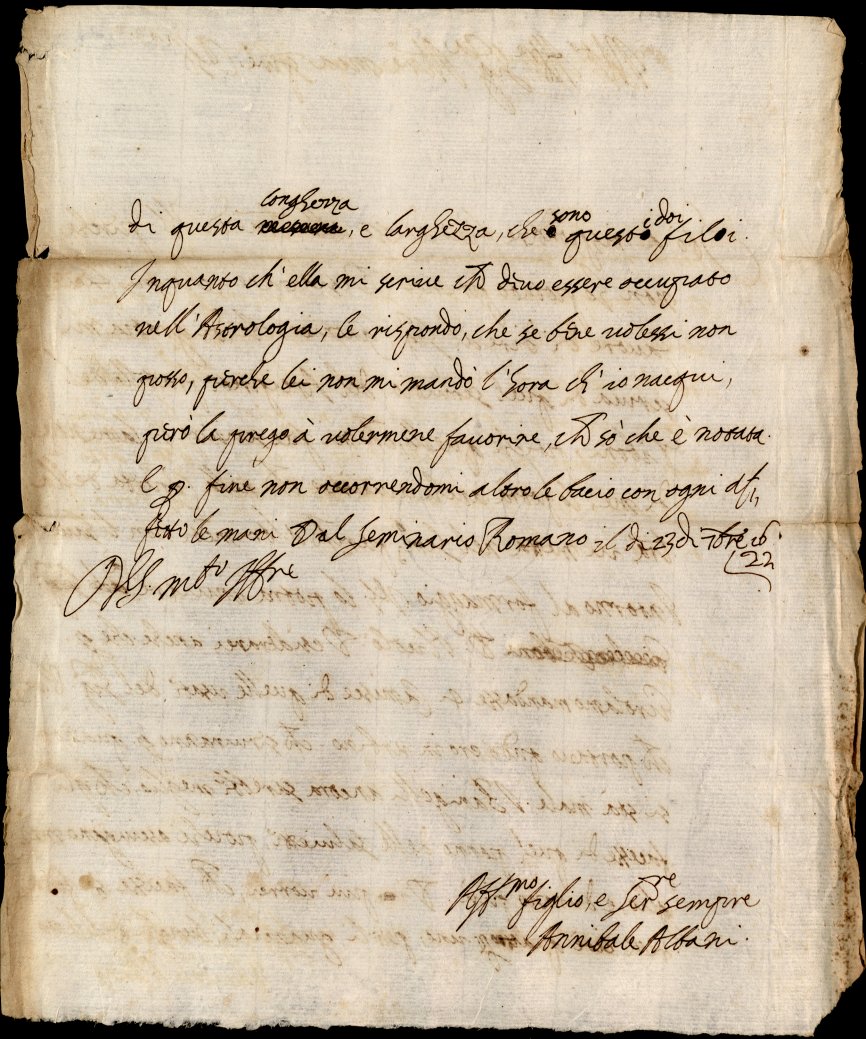 longhezza
di questa misura, e larghezza, che sono questi doi fili.
Inquanto ch'ella mi scriue ch'io deuo essere occupato
nell'Astrologia, le rispondo, che se bene uolessi non
posso, perche lei non mi mandò l'hora ch'io nacqui,
però la prego à uolermene fauorire, ch sò che è notata.
E p. fine non occorrendomi altro le bacio con ogni aff
etto le mani Dal Seminario Romano il dì 23 di 7bre 16
22
D.V.S. m.to Ill.re
Aff.mo figlio, e Ser.re sempre
Annibale Albani.